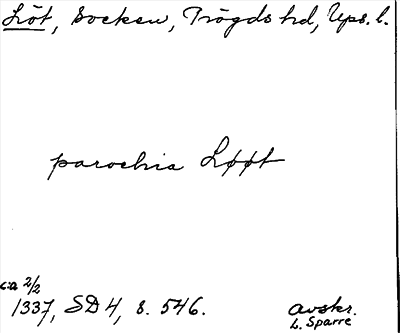 Löt, Socken, Trögds hd, Ups. l.
parochia Løøt
ca 2/2
1337, SD 4, s. 546.
avskr.
L. Sparre